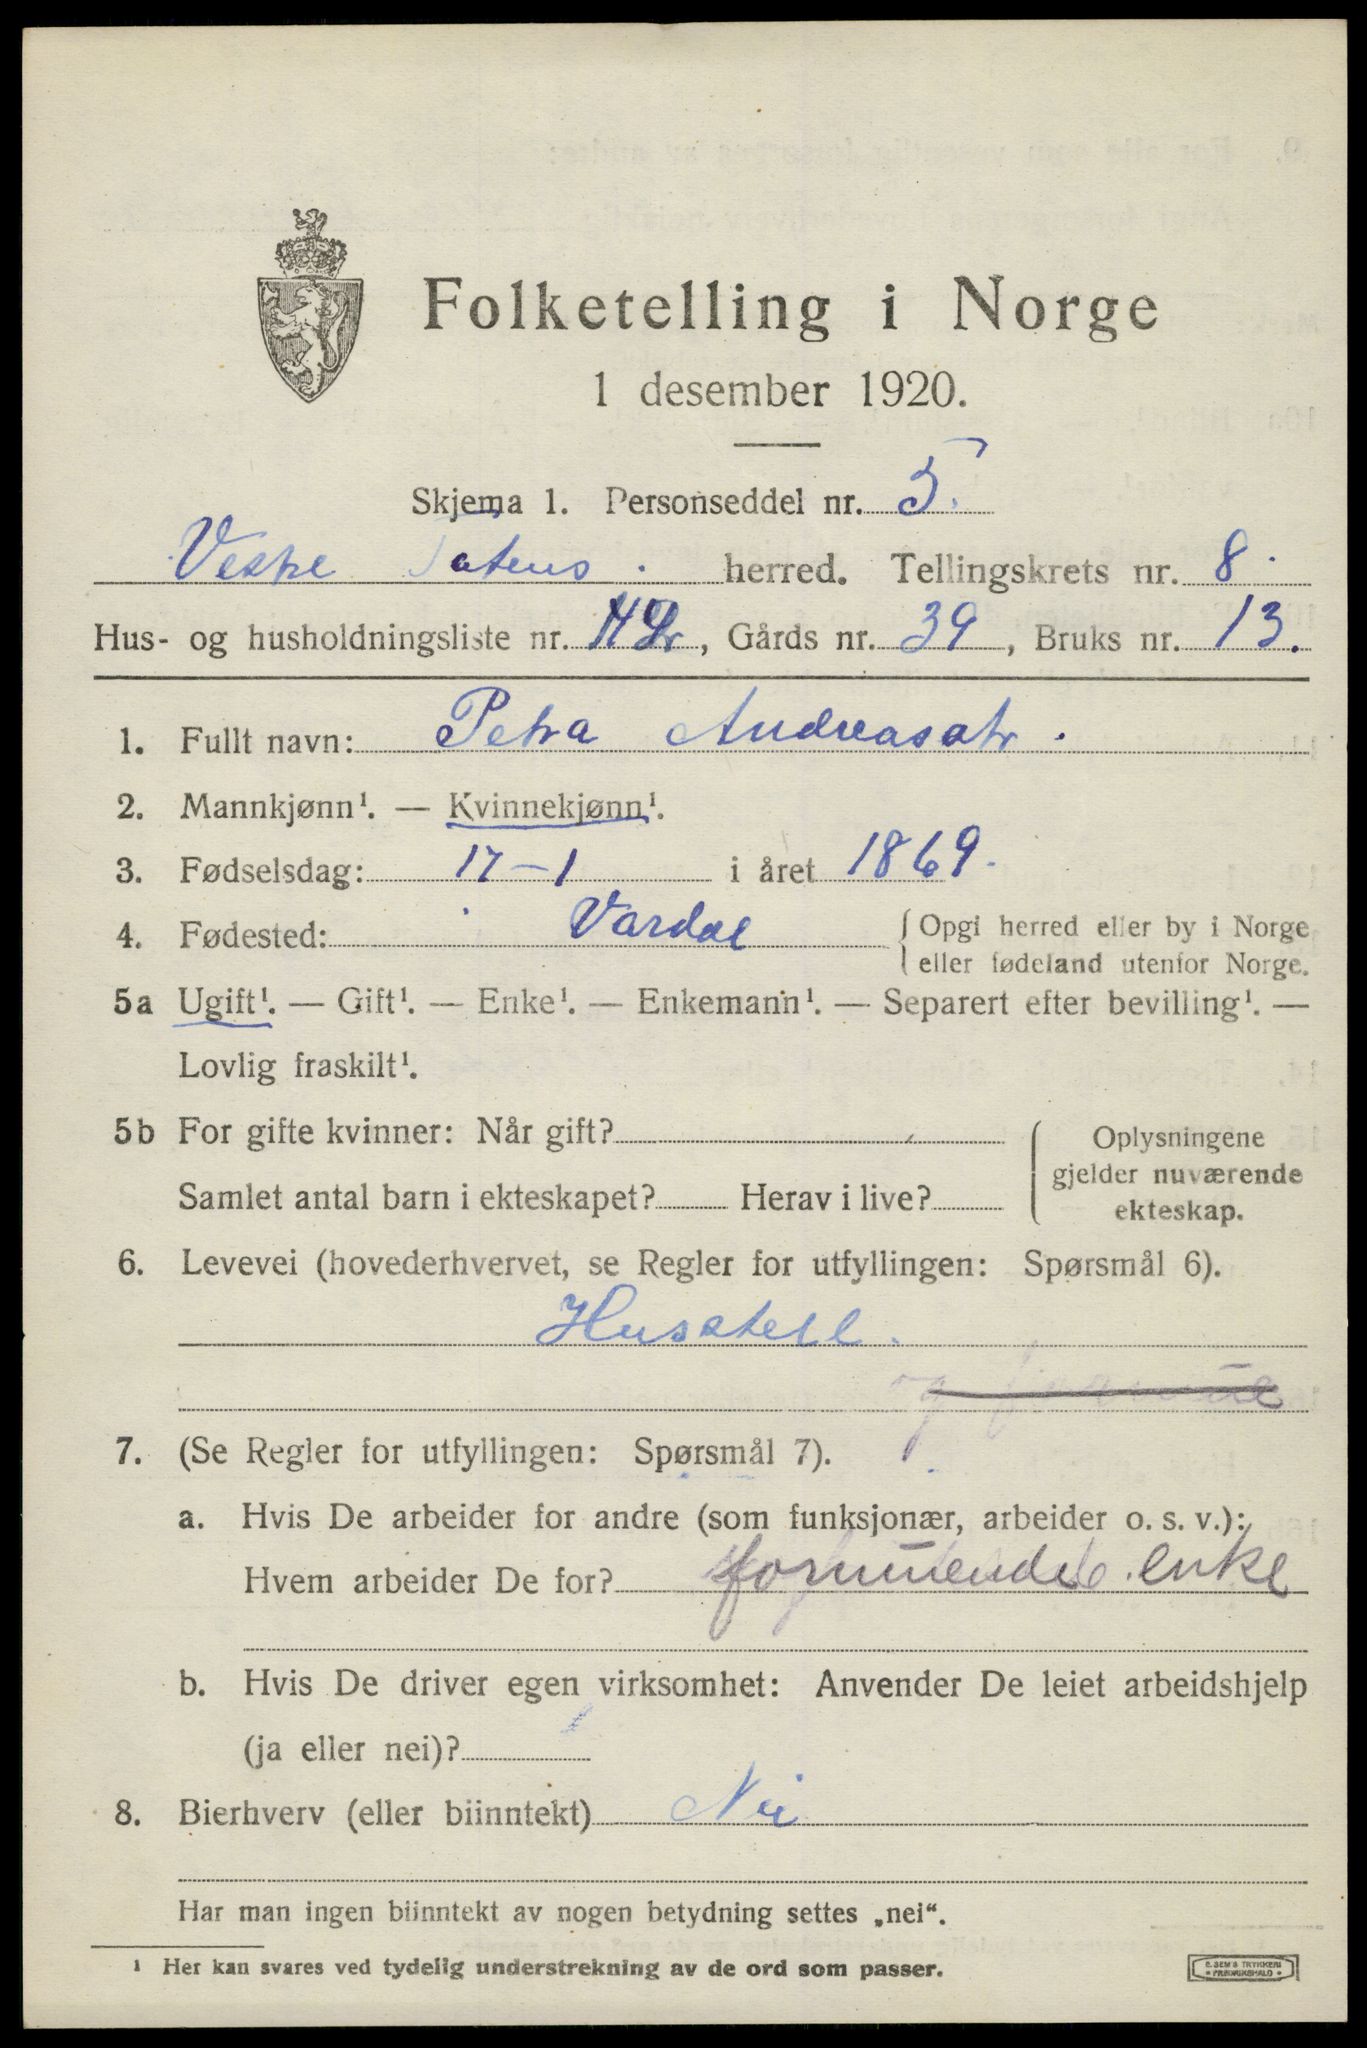 Folketelling i Norge
1 desember 1920.
Skjema 1. Personseddel nr. 5.
Vestre Totens herred. Tellingskrets nr. 8.
Hus- og husholdningsliste nr. , Gårds nr. 39, Bruks nr. 13.
1. Fullt navn: Petra Andreasdtr.
2. Mannkjønn¹. — Kvinnekjønn¹.
3. Fødselsdag: 17-1 i året 1869.
4. Fødested: Vardal { Opgi herred eller by i Norge
eller fødeland utenfor Norge.
5a Ugift¹. — Gift¹. — Enke¹. — Enkemann¹. — Separert efter bevilling¹. —
Lovlig fraskilt¹.
5b For gifte kvinner: Når gift? { Oplysningene
gjelder nuværende
Samlet antal barn i ekteskapet? Herav i live?
ekteskap.
6. Levevei (hovederhvervet, se Regler for utfyllingen: Spørsmål 6).
Husstell.
og
7. (Se Regler for utfyllingen: Spørsmål 7).
a. Hvis De arbeider for andre (som funksjonær, arbeider o. s. v.):
Hvem arbeider De for? formuende enke
b. Hvis De driver egen virksomhet: Anvender De leiet arbeidshjelp
(ja eller nei)?
8. Bierhverv (eller biinntekt) Nei
Har man ingen biinntekt av nogen betydning settes „nei“.
¹ Her kan svares ved tydelig understrekning av de ord som passer.
E. SEM'S TRYKKERI
FREDRIKSHALD